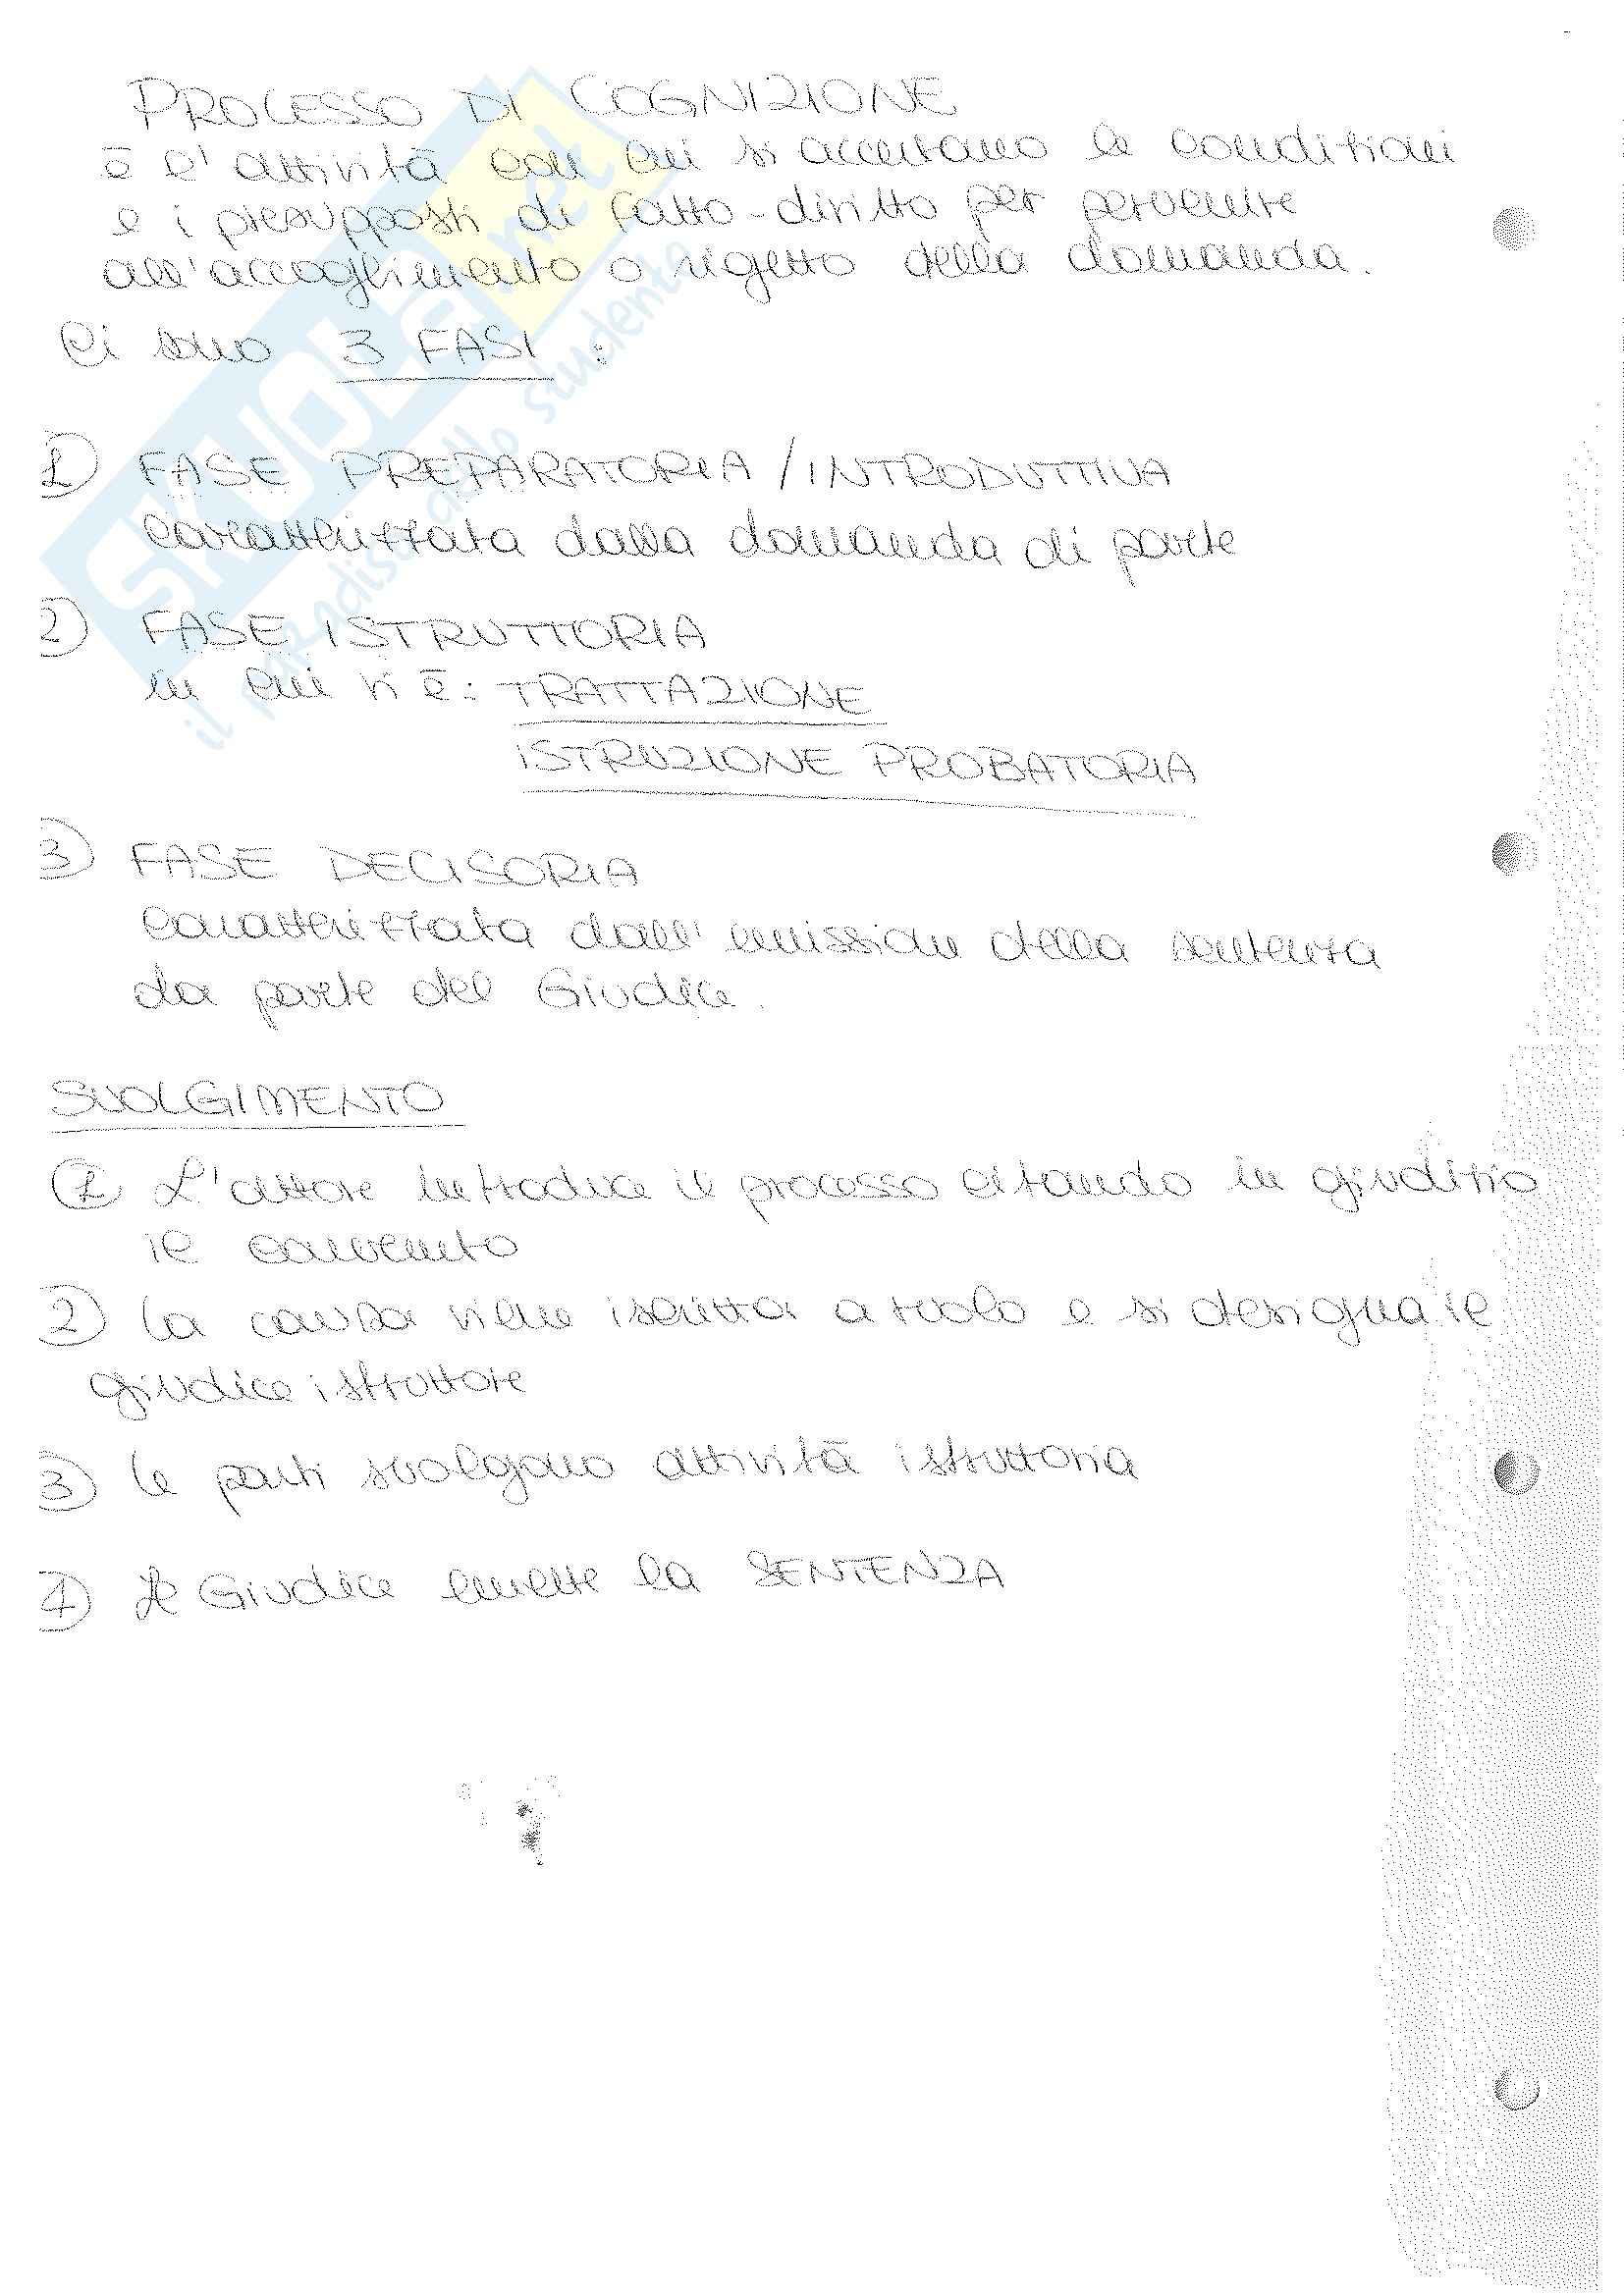 PROCESSO DI COGNIZIONE
è l'attività con cui si accertano le condizioni
e i presupposti di fatto-diritto per pervenire
all'accoglimento o rigetto della domanda.
Ci sono 3 FASI :
1) FASE PREPARATORIA / INTRODUTTIVA
caratterizzata dalla domanda di parte
2) FASE ISTRUTTORIA
in cui vi è: TRATTAZIONE
ISTRUZIONE PROBATORIA
3) FASE DECISORIA
caratterizzata dall'emissione della sentenza
da parte del Giudice.
SVOLGIMENTO
1) L'attore introduce il processo citando in giudizio
il convenuto
2) la causa viene iscritta a ruolo e si designa il
giudice istruttore
3) le parti svolgono attività istruttoria
4) Il Giudice emette la SENTENZA
SKUOLA.net
il paradiso dello studente